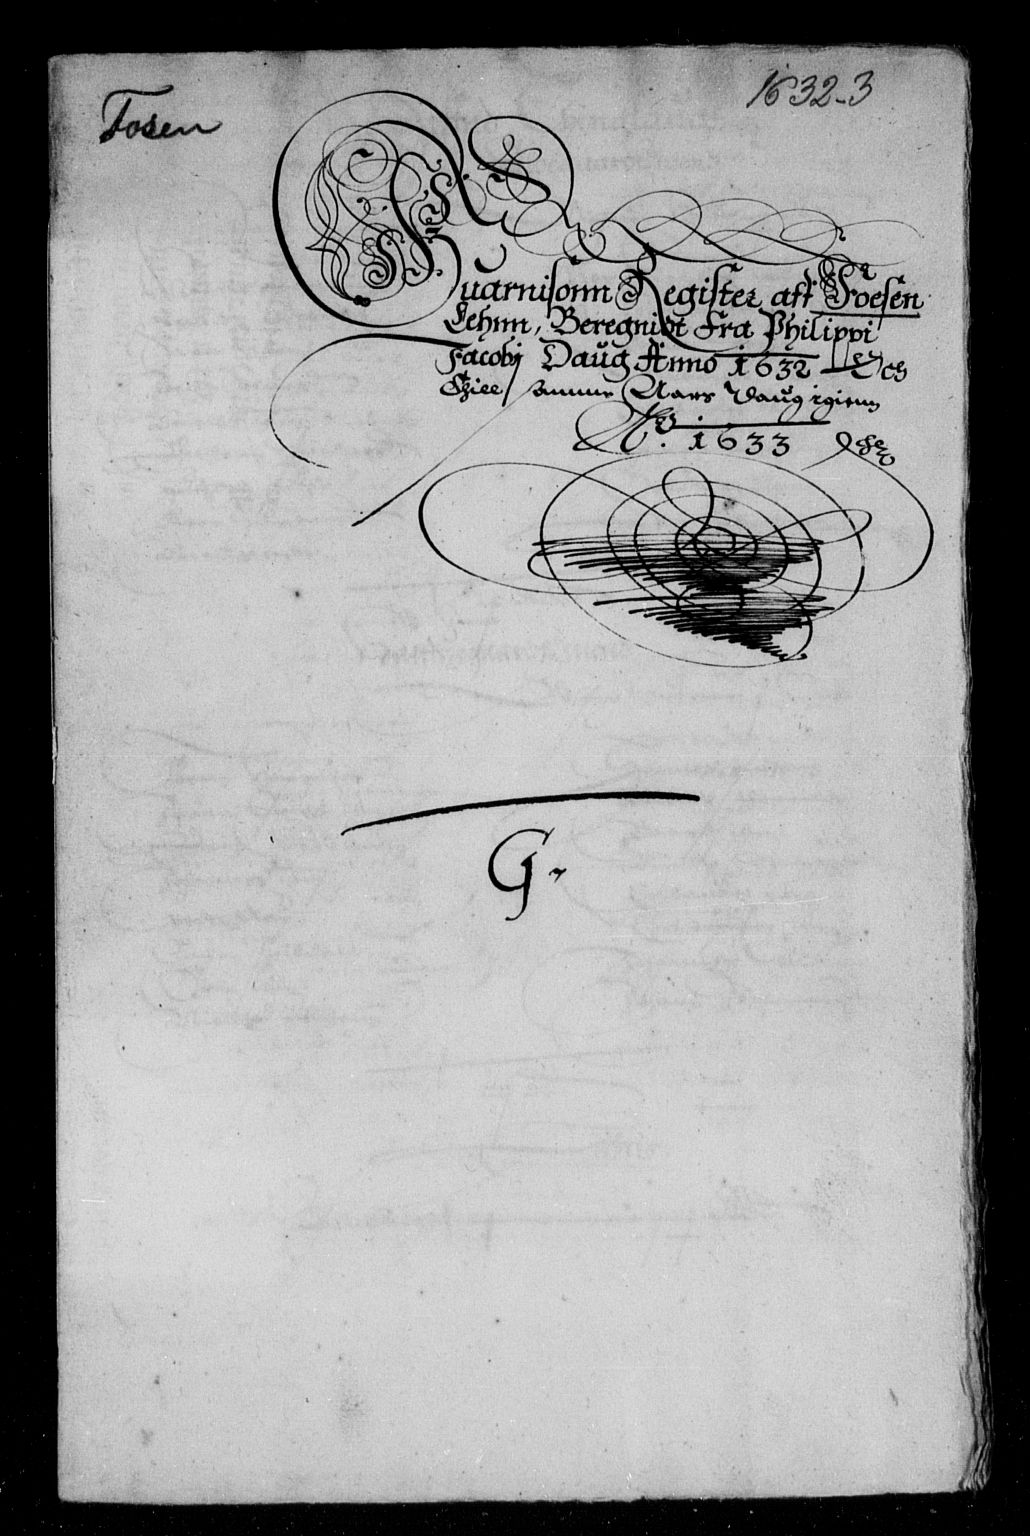 1632-3
Fosen
Guarnisonn Register aff Foesen
Lehnn, Beregnidt Fra Philippi
Jacobj Daug Anno 1632 Och
thill samme Aars Daug igienn
Ao. 1633
G.